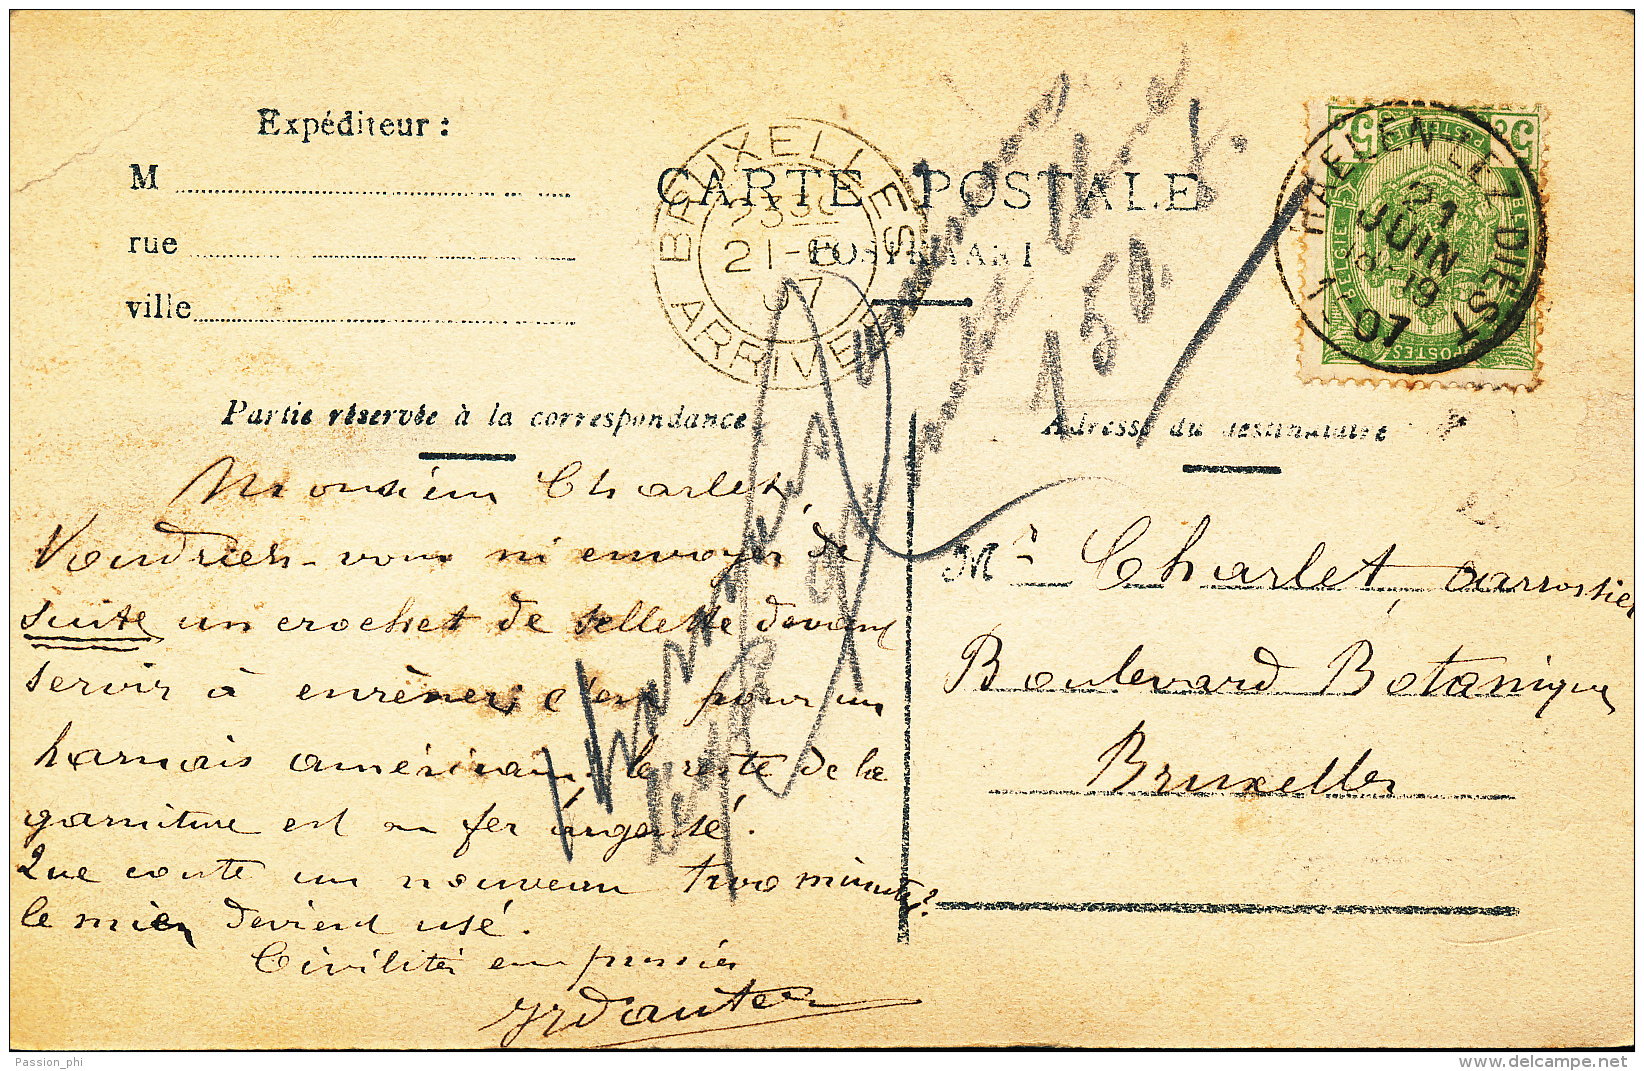 Expéditeur :
M
rue
ville
CARTE POSTALE
POSTKAART
BRUXELLES
21-6
07
ARRIVEE
5 5
BELGIE
POSTES
HAELEN-LEZ-DIEST
21
JUIN
18-19
07
Partie réservée à la correspondance
Adresse du destinataire
Monsieur Charlet,
Voudriez-vous m'envoyer de
suite un crochet de sellette devant
servir à enrêner, c'est pour un
harnais américain, le reste de la
garniture est en fer argenté.
Que coute un nouveau two minutes?
le mien devient usé.
Civilités empressées
Mr Charlet, carrossier
Boulevard Botanique
Bruxelles
150
Passion_phi
www.delcampe.net